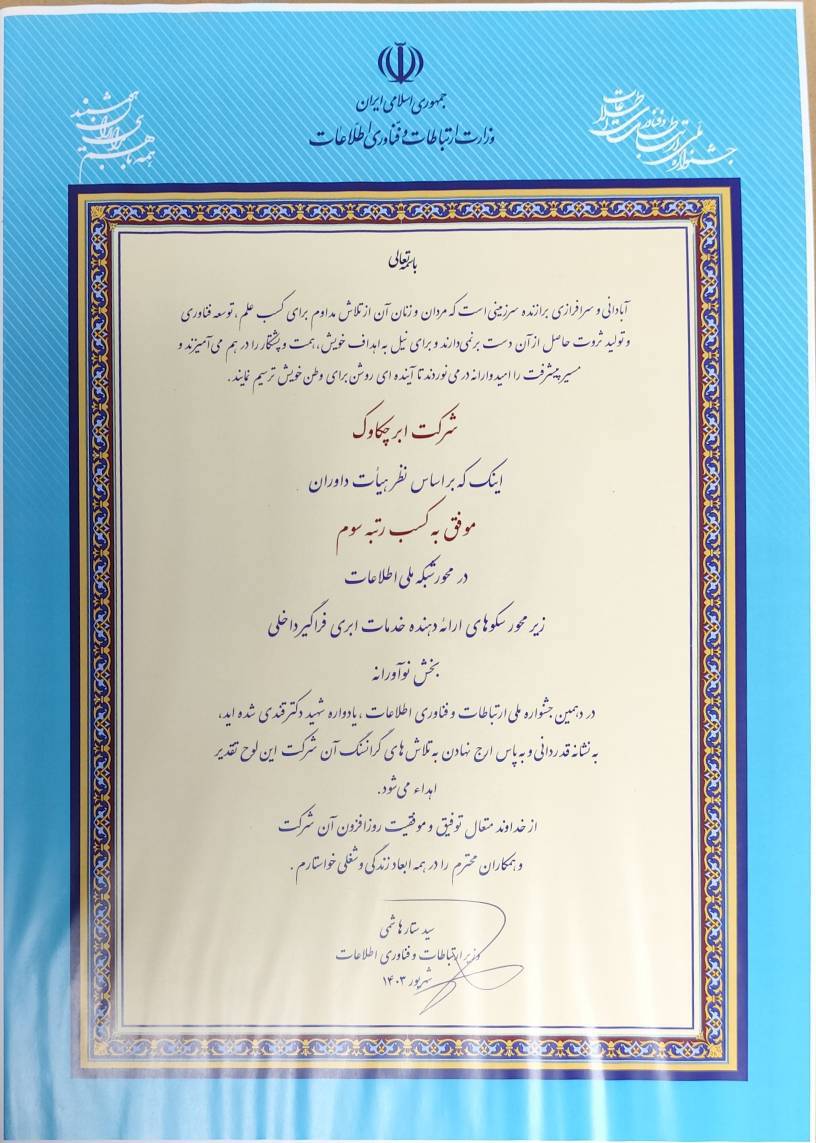 جمهوری اسلامی ایران
وزارت ارتباطات و فنّاوری اطّلاعات
جشنواره ملّی ارتباطات و فنّاوری اطلاعات
همه با هم برای ایران
باسمه تعالی
آبادانی و سرافرازی برازنده سرزمینی است که مردان و زنان آن از تلاش مداوم برای کسب علم، توسعه فناوری
و تولید ثروت حاصل از آن دست برنمی‌دارند و برای نیل به اهداف خویش، همت و پشتکار را در هم می‌آمیزند و
مسیر پیشرفت را امیدوارانه در می نوردند تا آینده ای روشن برای وطن خویش ترسیم نمایند.
شرکت ابر چکاوک
اینک که بر اساس نظر هیأت داوران
موفق به کسب رتبه سوم
در محور شبکه ملی اطلاعات
زیر محور سکوهای ارائه دهنده خدمات ابری فراگیر داخلی
بخش نوآورانه
در دهمین جشنواره ملی ارتباطات و فناوری اطلاعات، یادواره شهید دکتر قندی شده اید،
به نشانه قدردانی و به پاس ارج نهادن به تلاش های گرانسنگ آن شرکت این لوح تقدیر
اهداء می‌شود.
از خداوند متعال توفیق و موفقیت روزافزون آن شرکت
و همکاران محترم را در همه ابعاد زندگی و شغلی خواستارم.
سید ستار هاشمی
وزیر ارتباطات و فناوری اطلاعات
شهریور ۱۴۰۳